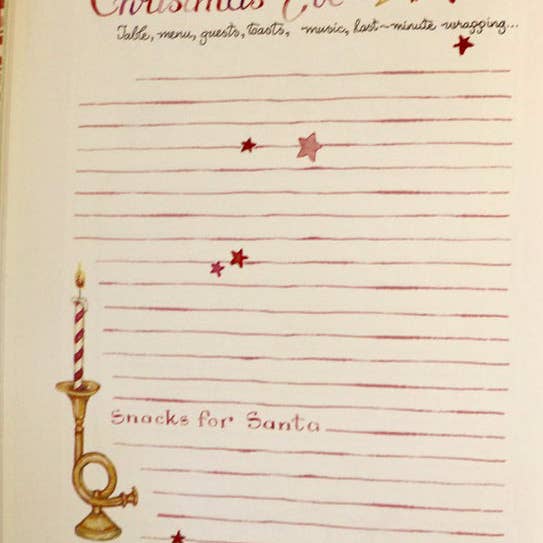 Christmas Eve
Table, menu, guests, toasts, music, last-minute wrapping...
Snacks for Santa